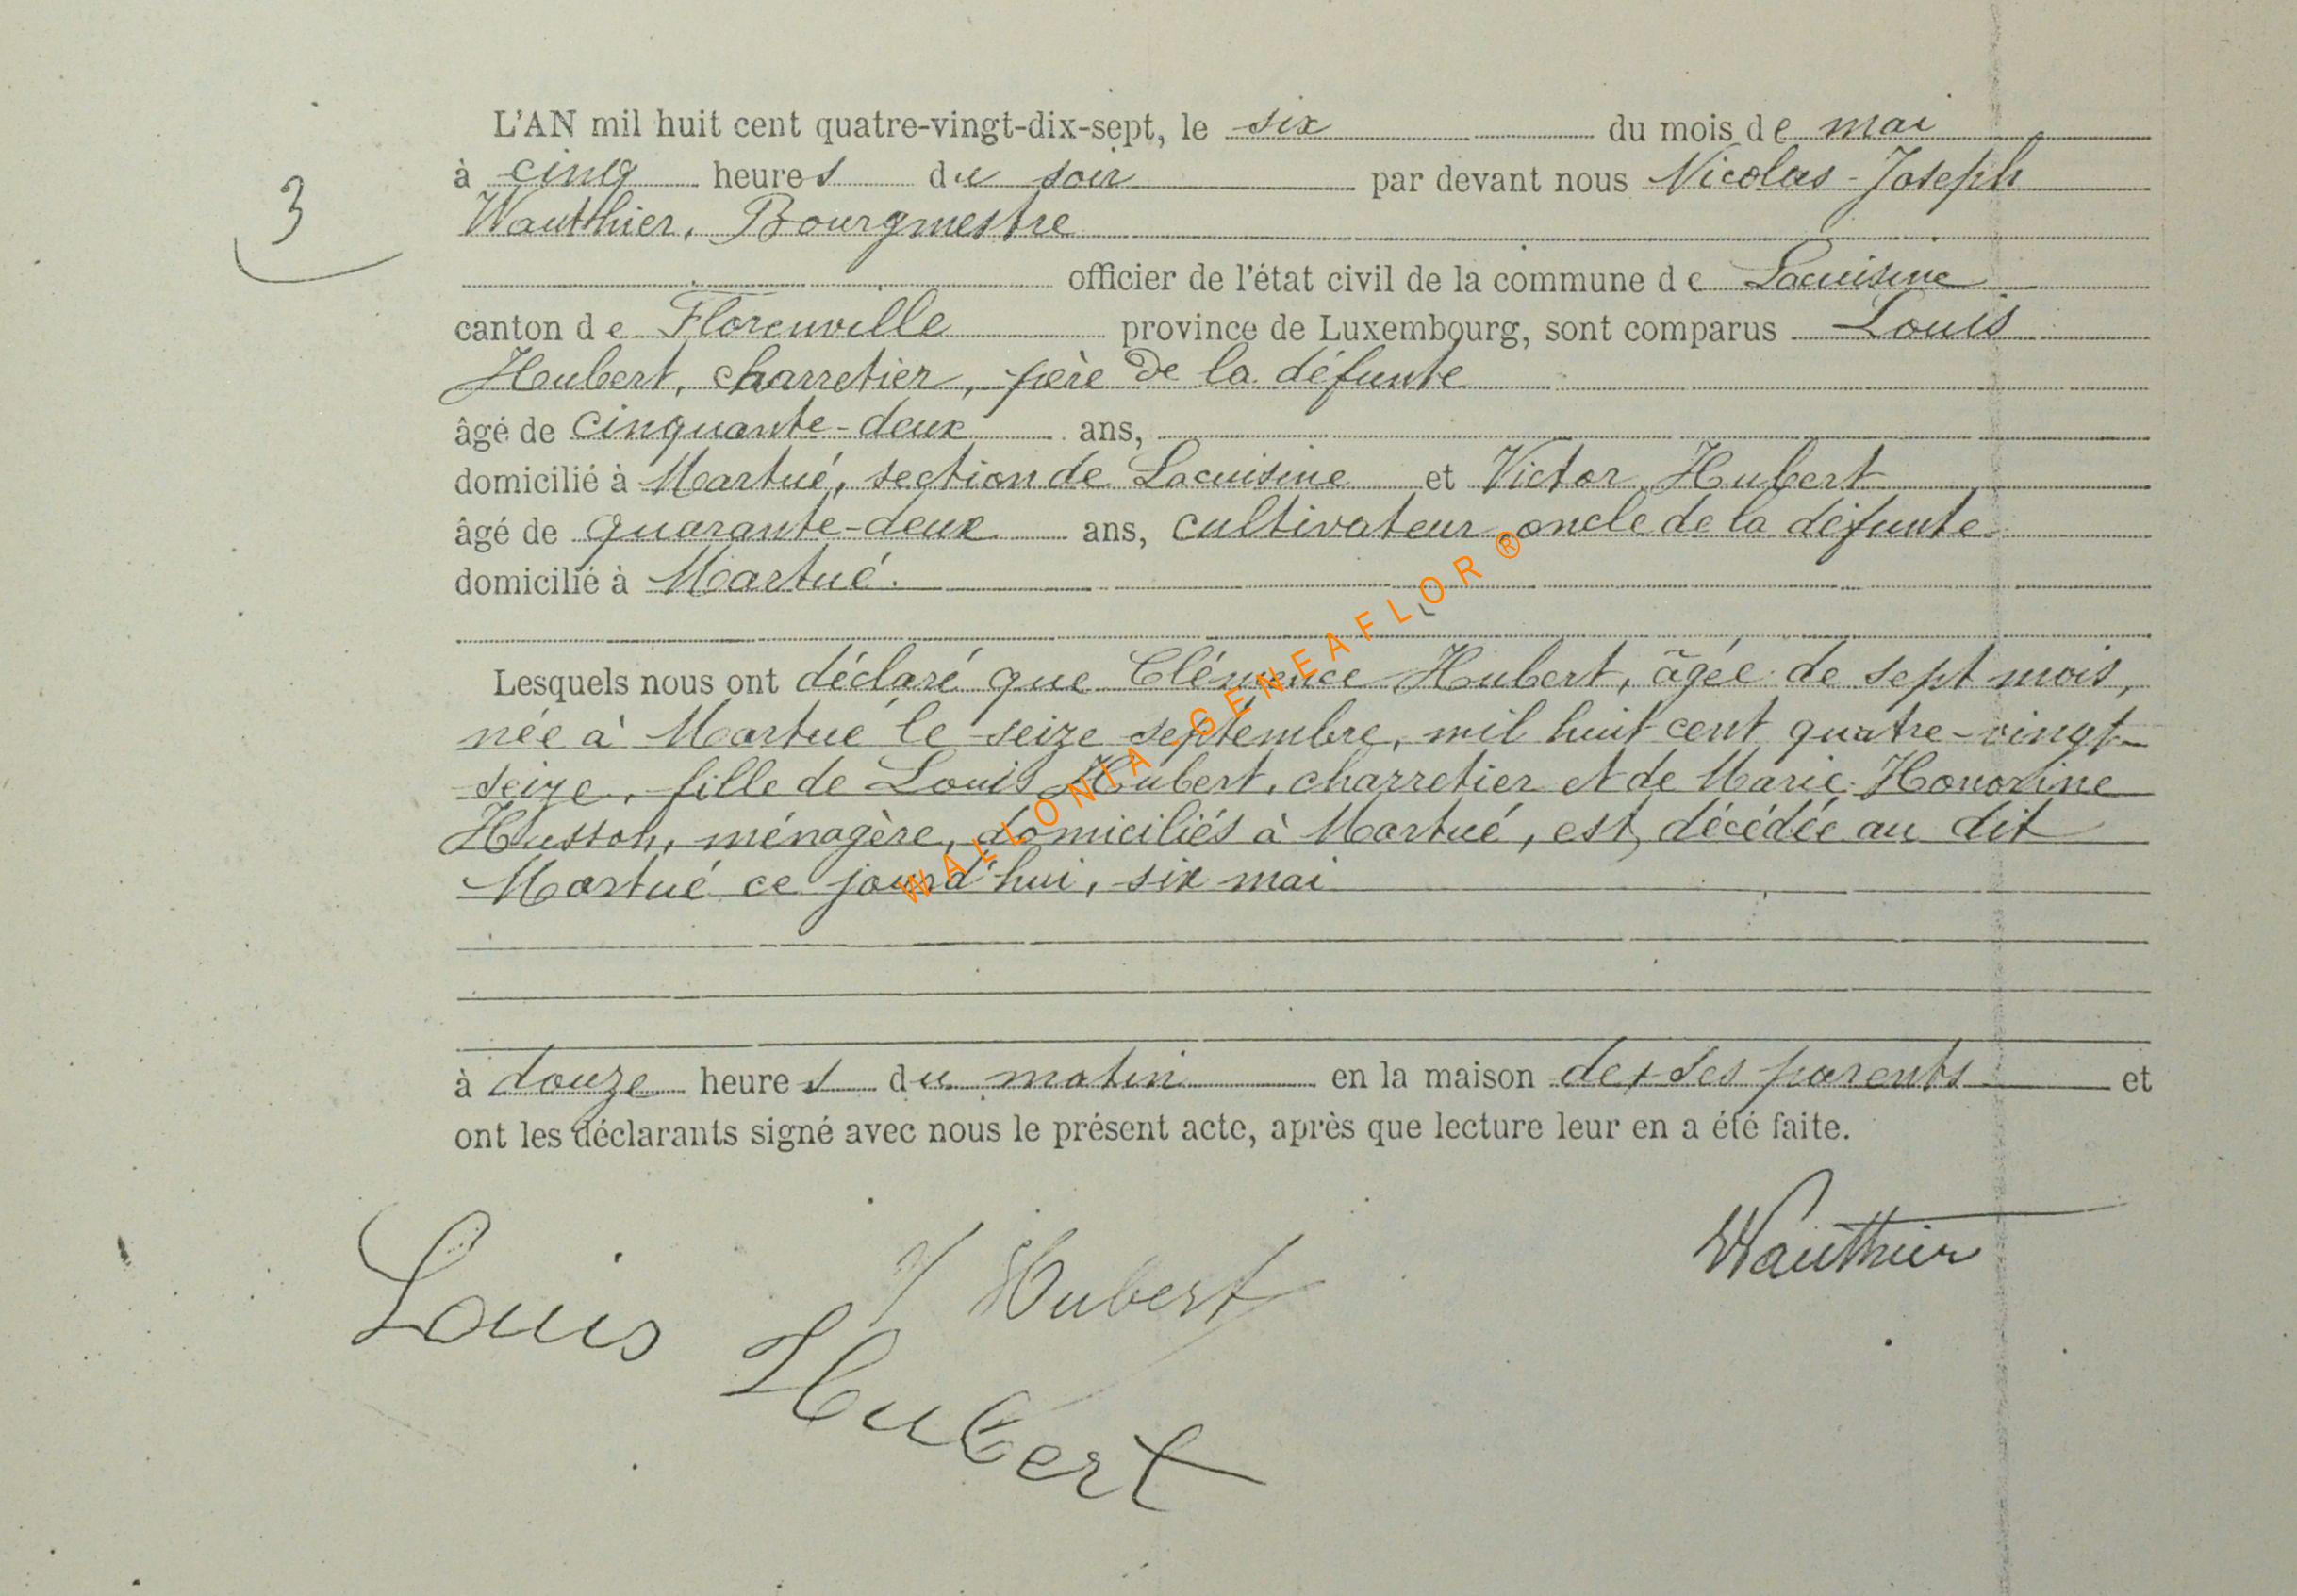 3
L'AN mil huit cent quatre-vingt-dix-sept, le six du mois de mai
à cinq heures du soir par devant nous Nicolas-Joseph
Wauthier, Bourgmestre
officier de l'état civil de la commune de Lacuisine
canton de Florenville province de Luxembourg, sont comparus Louis
Hubert, charretier, père de la défunte
âgé de cinquante-deux ans,
domicilié à Martué, section de Lacuisine et Victor Hubert
âgé de quarante-deux ans, cultivateur oncle de la défunte
domicilié à Martué.
Lesquels nous ont déclaré que Clémence Hubert, âgée de sept mois,
née à Martué le seize septembre, mil huit cent quatre-vingt-
seize, fille de Louis Hubert, charretier et de Marie-Honorine
Husson, ménagère, domiciliés à Martué, est décédée au dit
Martué ce jourd'hui, six mai
à douze heures du matin en la maison de ses parents et
ont les déclarants signé avec nous le présent acte, après que lecture leur en a été faite.
Wauthier
V Hubert
Louis Hubert
WALLONIA GENEAFLOR ®